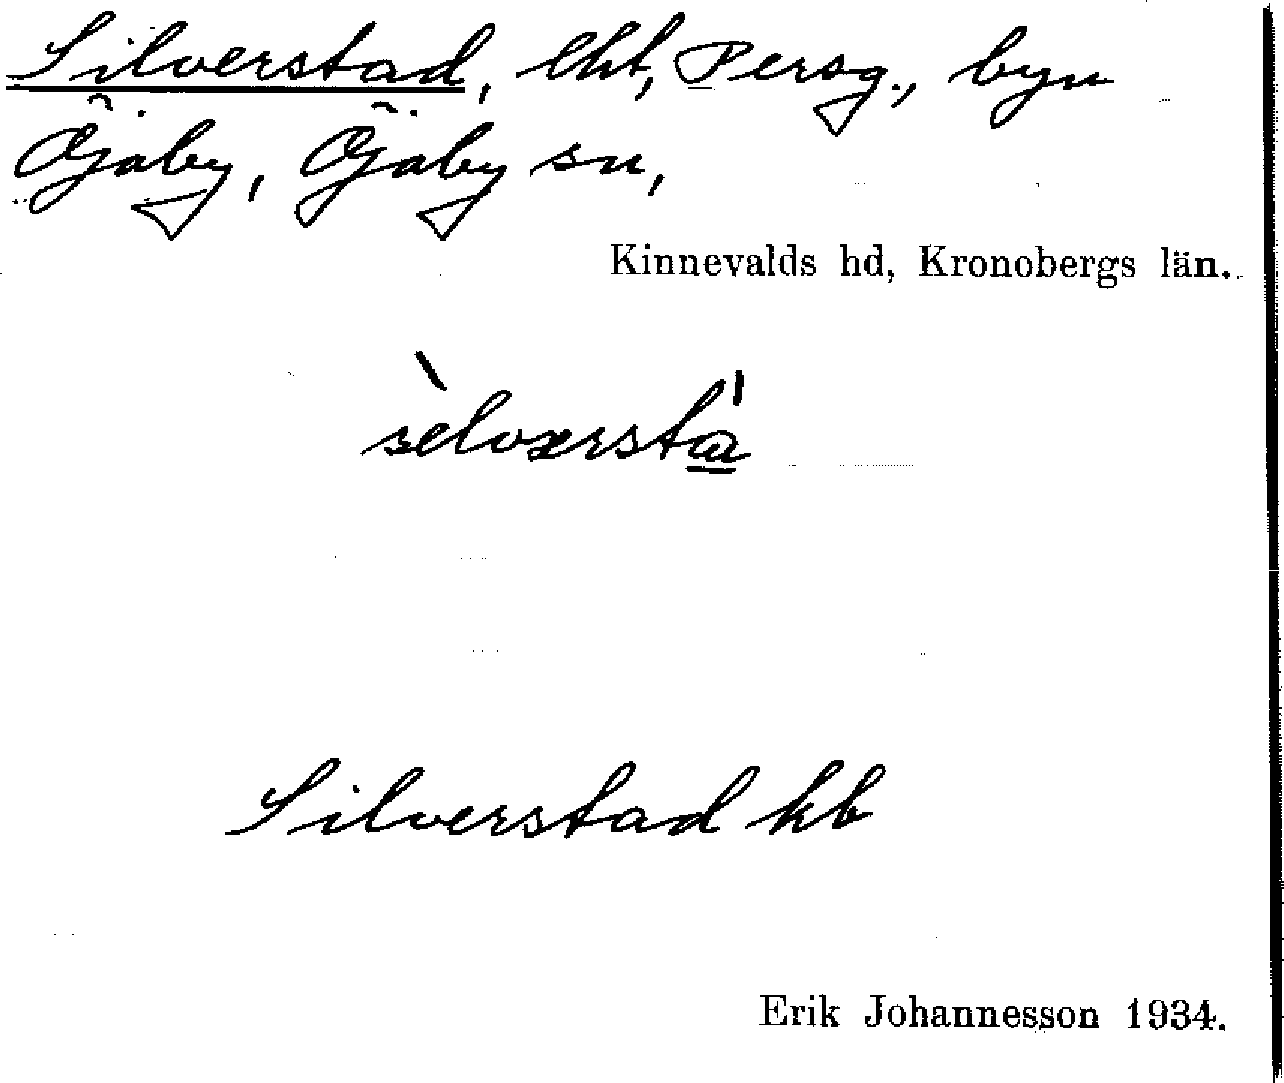 Silverstad, lht, Persg., byn
Öjaby, Öjaby sn,
Kinnevalds hd, Kronobergs län.
sèlværstá
Silverstad kb
Erik Johannesson 1934.